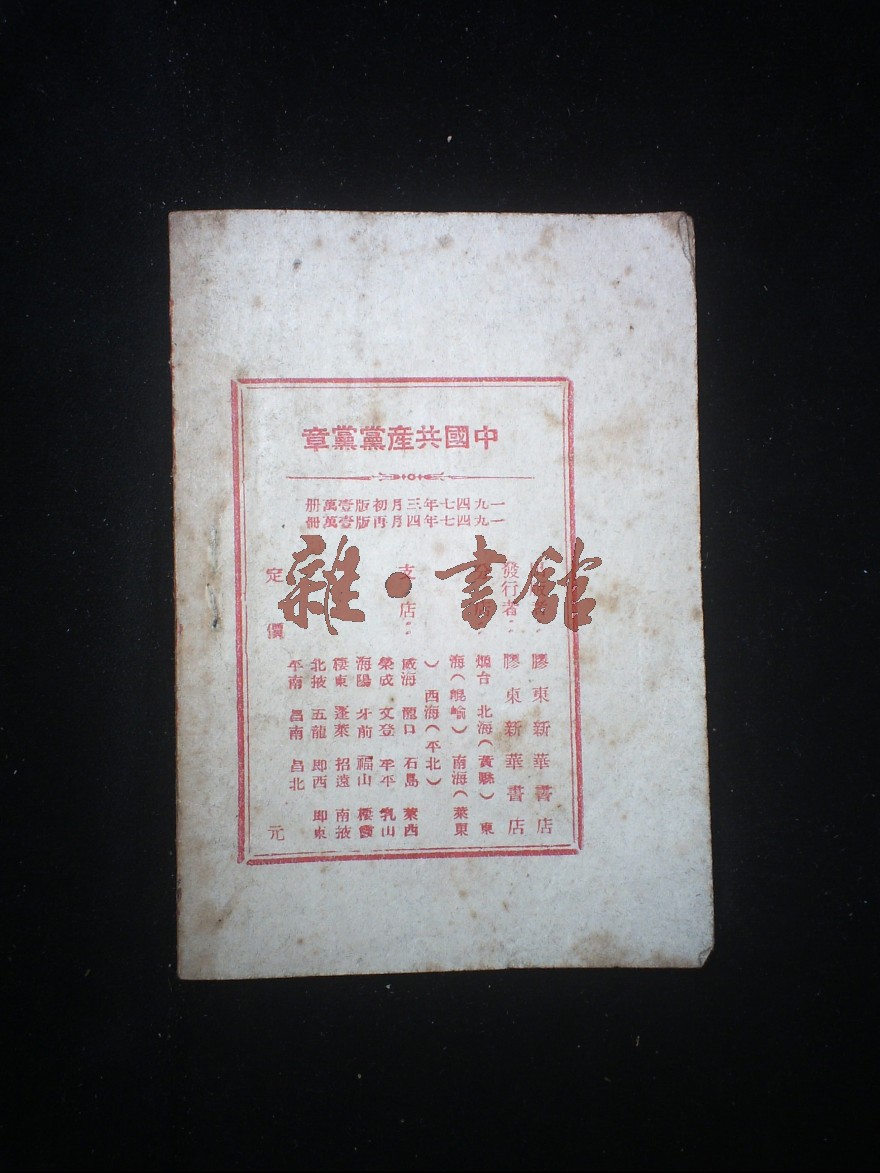 中國共產黨黨章
一九四七年三月初版壹萬册
一九四七年四月再版壹萬册
膠東新華書店
發行者：膠東新華書店
煙台 北海（黃縣） 東
海（崐嵛） 南海（萊東
） 西海（平北）
支店： 威海 龍口 石島 萊西
榮成 文登 牟平 乳山
海陽 牙前 福山 棲霞
棲東 蓬萊 招遠 南掖
北掖 五龍 即西 即東
平南 昌南 昌北
定價 元
雜·書館